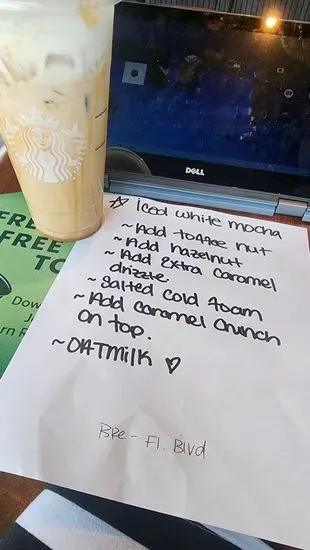 DELL
☆ Iced white mocha
~ Add toffee nut
~ Add hazelnut
~ Add extra caramel
drizzle
~ salted cold foam
~ Add caramel crunch
on top.
~ OATMILK ♡
BRe - Fl. Blvd
FRE
FREE
TO
Dow
J
rn R